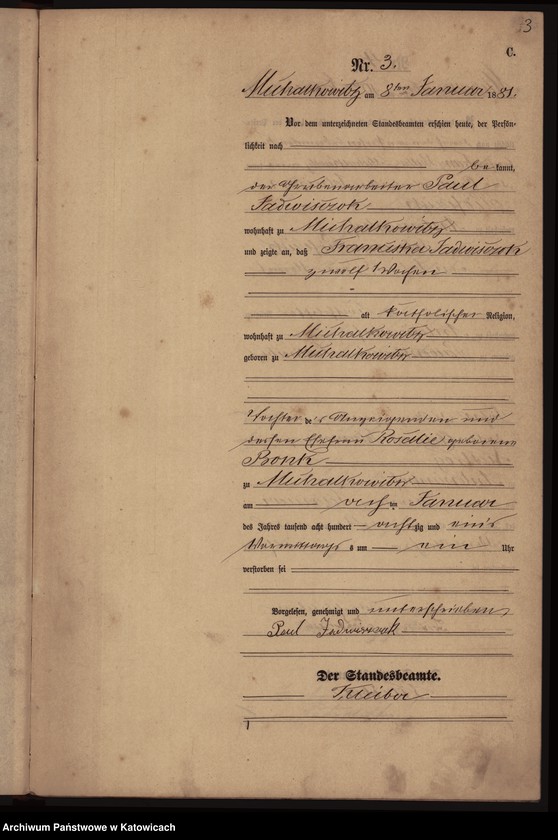 3
C.
Nr. 3.
Michalkowitz am 8ten Januar 1881.
Vor dem unterzeichneten Standesbeamten erschien heute, der Persön-
lichkeit nach
be kannt,
der Grubenarbeiter Paul
Jadwiszok
wohnhaft zu Michalkowitz
und zeigte an, daß Franciska Jadwiszok
zwölf Wochen
alt katholischer Religion,
wohnhaft zu Michalkowitz
geboren zu Michalkowitz
Tochter des Anzeigenden und
dessen Ehefrau Rosalie geborene
Bronk
zu Michalkowitz
am acht ten Januar
des Jahres tausend acht hundert achtzig und eins
Vormittags s um ein Uhr
verstorben sei
Vorgelesen, genehmigt und unterschrieben
Paul Jadwiszok
Der Standesbeamte.
Archiwum Państwowe w Katowicach